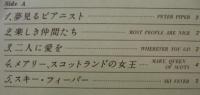 Side A
1. 夢見るピアニスト PETER PIPER 2
2. 楽しき仲間たち MOST PEOPLE ARE NICE 2
3. 二人に愛を WHEREVER YOU GO
4. メアリー、スコットランドの女王 MARY, QUEEN OF SCOTS
5. スキー・フィーバー SKI FEVER 2